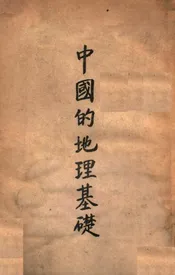 中國的地理基礎